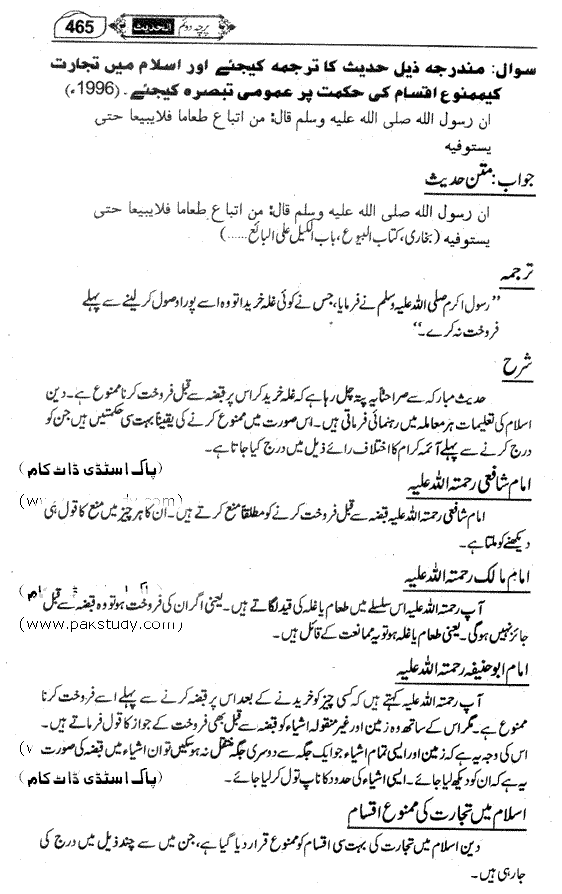 465 الحدیث پرچہ دوئم
سوال: مندرجہ ذیل حدیث کا ترجمہ کیجئے اور اسلام میں تجارت
کیممنوع اقسام کی حکمت پر عمومی تبصرہ کیجئے۔ (1996ء)
ان رسول الله صلی الله علیه وسلم قال: من اتباع طعاما فلایبیعا حتی
یستوفیه
جواب: متن حدیث
ان رسول الله صلی الله علیه وسلم قال: من اتباع طعاما فلایبیعا حتی
یستوفیه (بخاری، کتاب البیوع، باب الکیل علی البائع ......)
ترجمہ
”رسول اکرم صلی اللہ علیہ وسلم نے فرمایا، جس نے کوئی غلہ خریدا تو وہ اسے پورا وصول کر لینے سے پہلے
فروخت نہ کرے۔“
شرح
حدیث مبارکہ سے صراحتاً یہ پتہ چل رہا ہے کہ غلہ خرید کر اس پر قبضہ سے قبل فروخت کرنا ممنوع ہے۔ دین
اسلام کی تعلیمات ہر معاملہ میں رہنمائی فرماتی ہیں۔ اس صورت میں ممنوع کرنے کی یقیناً بہت سی حکمتیں ہیں جن کو
درج کرنے سے پہلے آئمہ کرام کا اختلاف رائے ذیل میں درج کیا جاتا ہے۔
(پاک اسٹڈی ڈاٹ کام)
امام شافعی رحمتہ اللہ علیہ
امام شافعی رحمتہ اللہ علیہ قبضہ سے قبل فروخت کرنے کو مطلقاً منع کرتے ہیں۔ ان کا ہر چیز میں منع کا قول ہی
دیکھنے کو ملتا ہے۔
امام مالک رحمتہ اللہ علیہ
آپ رحمتہ اللہ علیہ اس سلسلے میں طعام یا غلہ کی قید لگاتے ہیں۔ یعنی اگر ان کی فروخت ہو تو وہ قبضہ سے قبل
(www.pakstudy.com)
جائز نہیں ہو گی۔ یعنی طعام یا غلہ ہو تو یہ ممانعت کے قائل ہیں۔
امام ابوحنیفہ رحمتہ اللہ علیہ
آپ رحمتہ اللہ علیہ کہتے ہیں کہ کسی چیز کو خریدنے کے بعد اس پر قبضہ کرنے سے پہلے اسے فروخت کرنا
ممنوع ہے۔ مگر اس کے ساتھ وہ زمین اور غیر منقولہ اشیاء کو قبضہ سے قبل بھی فروخت کے جواز کا قول فرماتے ہیں۔
اس کی وجہ یہ ہے کہ زمین اور ایسی تمام اشیاء جو ایک جگہ سے دوسری جگہ منتقل نہ ہو سکیں تو ان اشیاء میں قبضہ کی صورت
یہ ہے کہ ان کو دیکھ لیا جائے۔ ایسی اشیاء کی حدود کا ناپ تول کر لیا جائے۔ (پاک اسٹڈی ڈاٹ کام
اسلام میں تجارت کی ممنوع اقسام
دین اسلام میں تجارت کی بہت سی اقسام کو ممنوع قرار دیا گیا ہے، جن میں سے چند ذیل میں درج کی
جا رہی ہیں۔